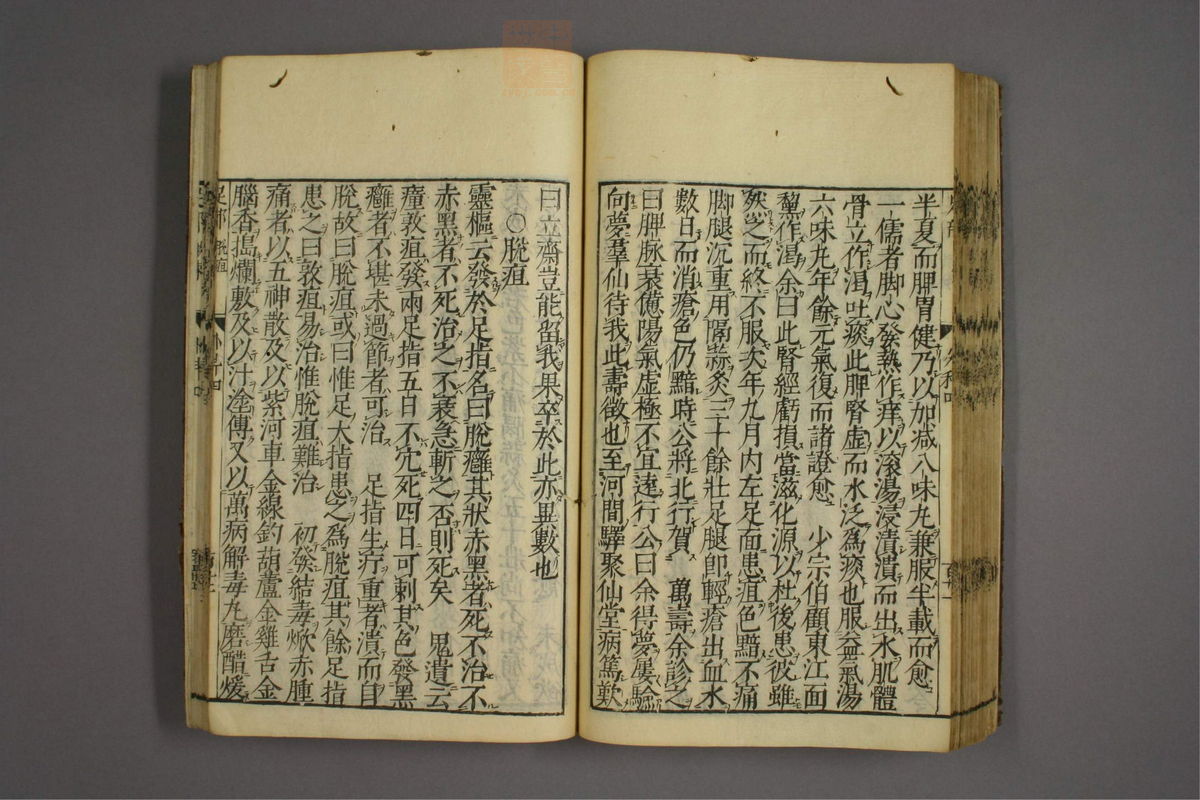 半夏而脾胃健乃以加減八味丸兼服半載而愈
一儒者脚心發熱作痒以滚湯浸漬潰而出水肌體
骨立作渴吐痰此脾腎虛而水泛為痰也服益氣湯
六味丸年餘元氣復而諸證愈　少宗伯顧東江面
黧作渴余曰此腎經虧損當滋化源以杜後患彼雖
然之而終不服次年九月內左足面患疽色黯不痛
脚腿沉重用隔蒜灸三十餘壯足腿卽輕瘡出血水
數日而消瘡色仍黯時公將北行賀　萬壽余診之
曰脾脉衰憊陽氣虛極不宜遠行公曰余得夢屢驗
向夢羣仙待我此壽徵也至河間驛聚仙堂病篤歎
曰立齋豈能留我果卒於此亦異數也
○脫疽
靈樞云發於足指名曰脫癰其狀赤黑者死不治不
赤黑者不死治之不衰急斬之否則死矣　鬼遺云
瘇敦疽發兩足指五日不宂死四日可刺其色發黑
癰者不堪未過節者可治　足指生疔重者潰而自
脫故曰脫疽或曰惟足大指患之為脫疽其餘足指
患之曰敦疽易治惟脫疽難治　初發結毒焮赤腫
痛者以五神散及以紫河車金線釣葫蘆金雞舌金
腦香搗爛敷及以汁塗傅又以萬病解毒丸磨醋煖
足部　脫疽